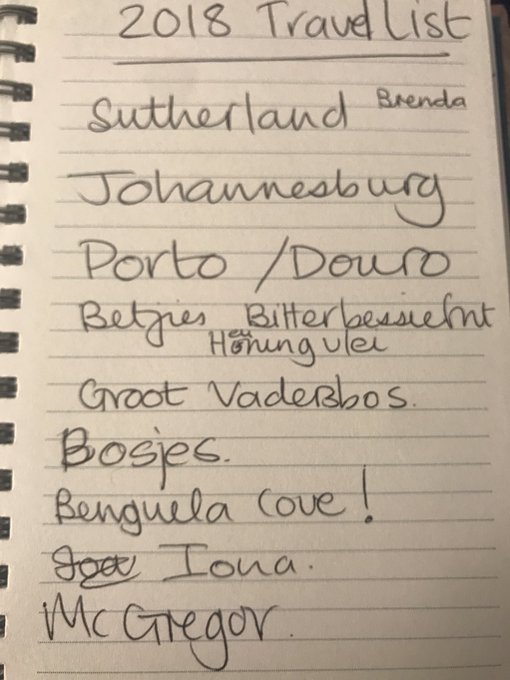 2018 Travel List
Sutherland Brenda
Johannesburg
Porto / Douro
Betjies
Heuningvlei
Groot Vadersbos.
Bosjes.
Benguela Cove!
Iona.
McGregor.